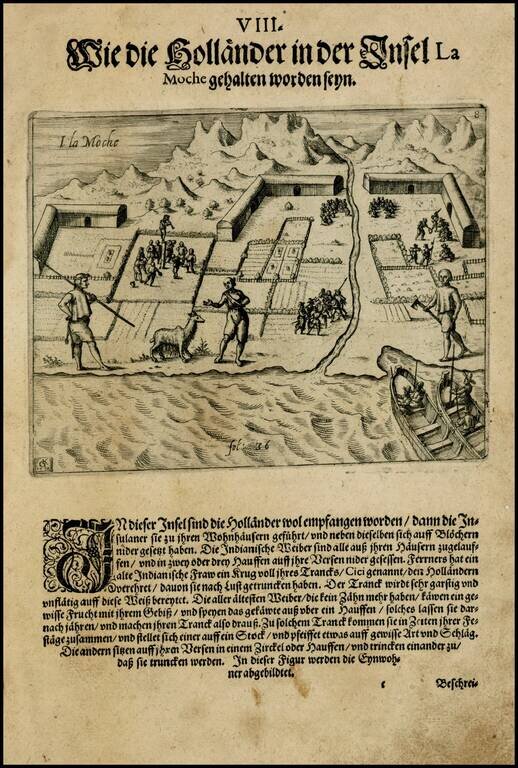 VIII.
Wie die Holländer in der Insel La
Moche gehalten worden seyn.
8
I la Moche
fol: 26
IN dieser Insel sind die Holländer wol empfangen worden / dann die In-
sulaner sie zu jhren Wohnhäusern geführt / vnd neben dieselben sich auff Blöchern
nider gesetzt haben. Die Indianische Weiber sind alle auß jhren Häusern zugelauf-
fen / vnd in zwey oder drey Hauffen auff jhre Versen nider gesessen. Ferrners hat ein
alte Indianische Fraw ein Krug voll jhres Trancks / Cici genannt / den Holländern
verehret / dauon sie nach Lust getruncken haben. Der Tranck wirdt sehr garstig vnd
vnflätig auff diese Weiß bereytet. Die aller ältesten Weiber / die kein Zähn mehr haben / käwen ein ge-
wisse Frucht mit jhrem Gebiß / vnd speyen das gekäwte auß vber ein Hauffen / solches lassen sie dar-
nach jähren / vnd machen jhren Tranck also drauß. Zu solchem Tranck kommen sie in Zeiten jhrer Fe-
stäge zusammen / vnd stellet sich einer auff ein Stock / vnd pfeiffet etwas auff gewisse Art vnd Schläg.
Die andern sitzen auff jhren Versen in einem Zirckel oder Hauffen / vnd trincken einander zu /
daß sie truncken werden. In dieser Figur werden die Eynwoh-
ner abgebildtet.
c
Beschrei-